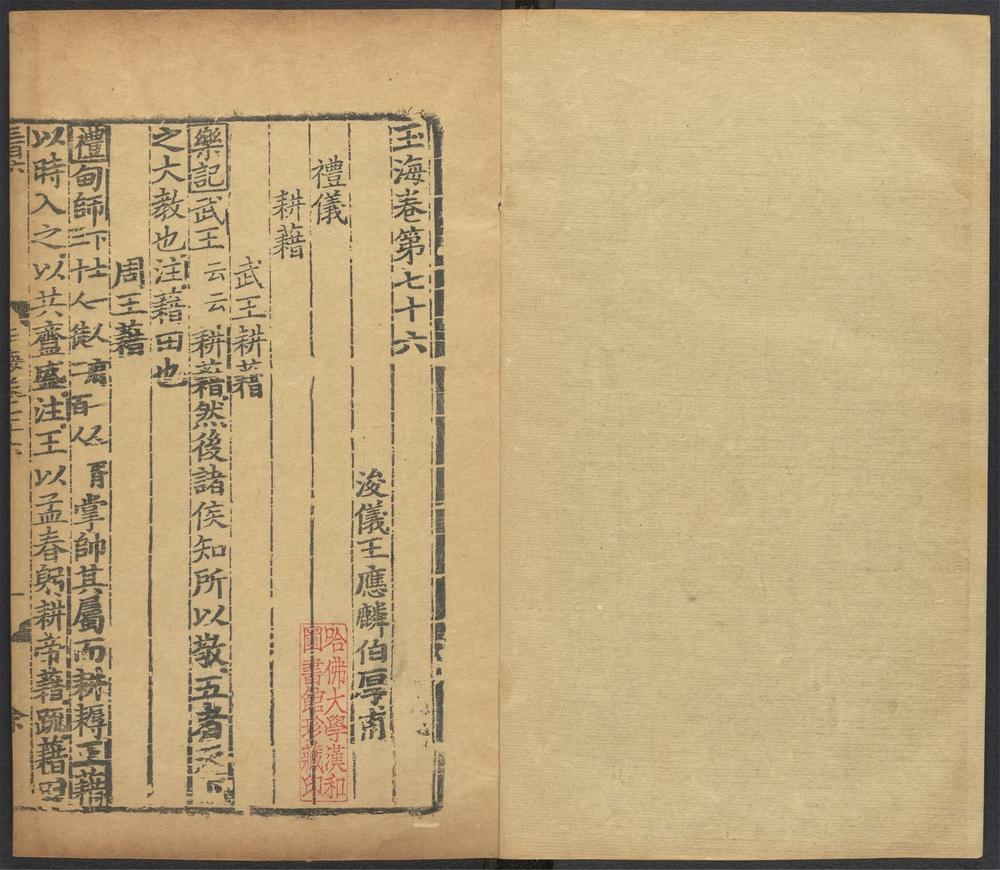 玉海卷第七十六
浚儀王應麟伯厚甫
禮儀
耕藉
武王耕藉
樂記武王云云耕藉然後諸侯知所以敬五者天下
之大教也注藉田也
周王藉
禮甸師下士二人徒三百人掌帥其屬而耕耨王藉
以時入之以共齍盛注王以孟春躬耕帝藉疏藉田
哈佛大學漢和
圖書館珍藏印